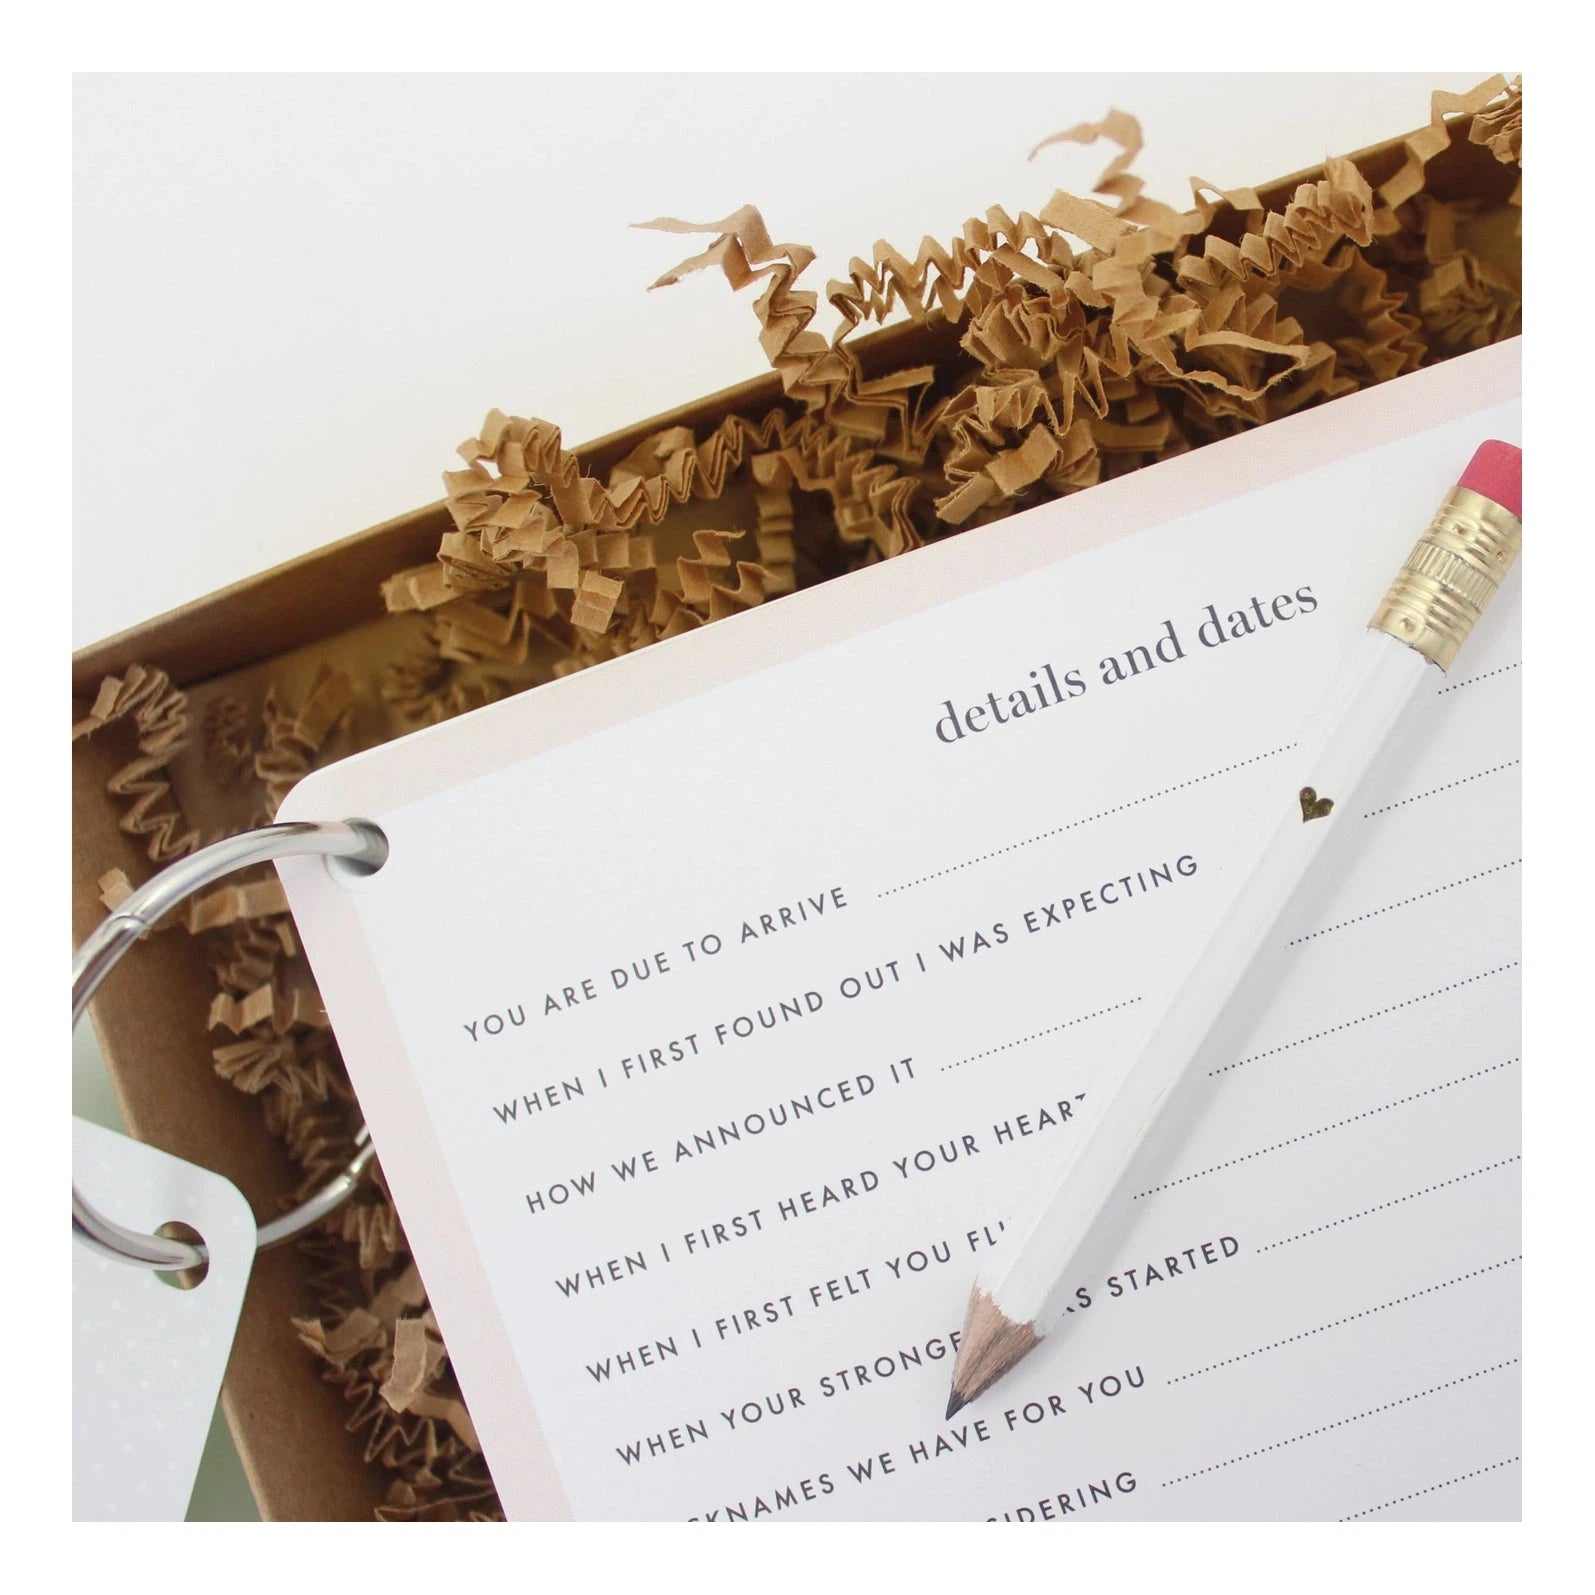 details and dates
YOU ARE DUE TO ARRIVE
WHEN I FIRST FOUND OUT I WAS EXPECTING
HOW WE ANNOUNCED IT
WHEN I FIRST HEARD YOUR HEART
WHEN I FIRST FELT YOU
WHEN YOUR STARTED
WE HAVE FOR YOU